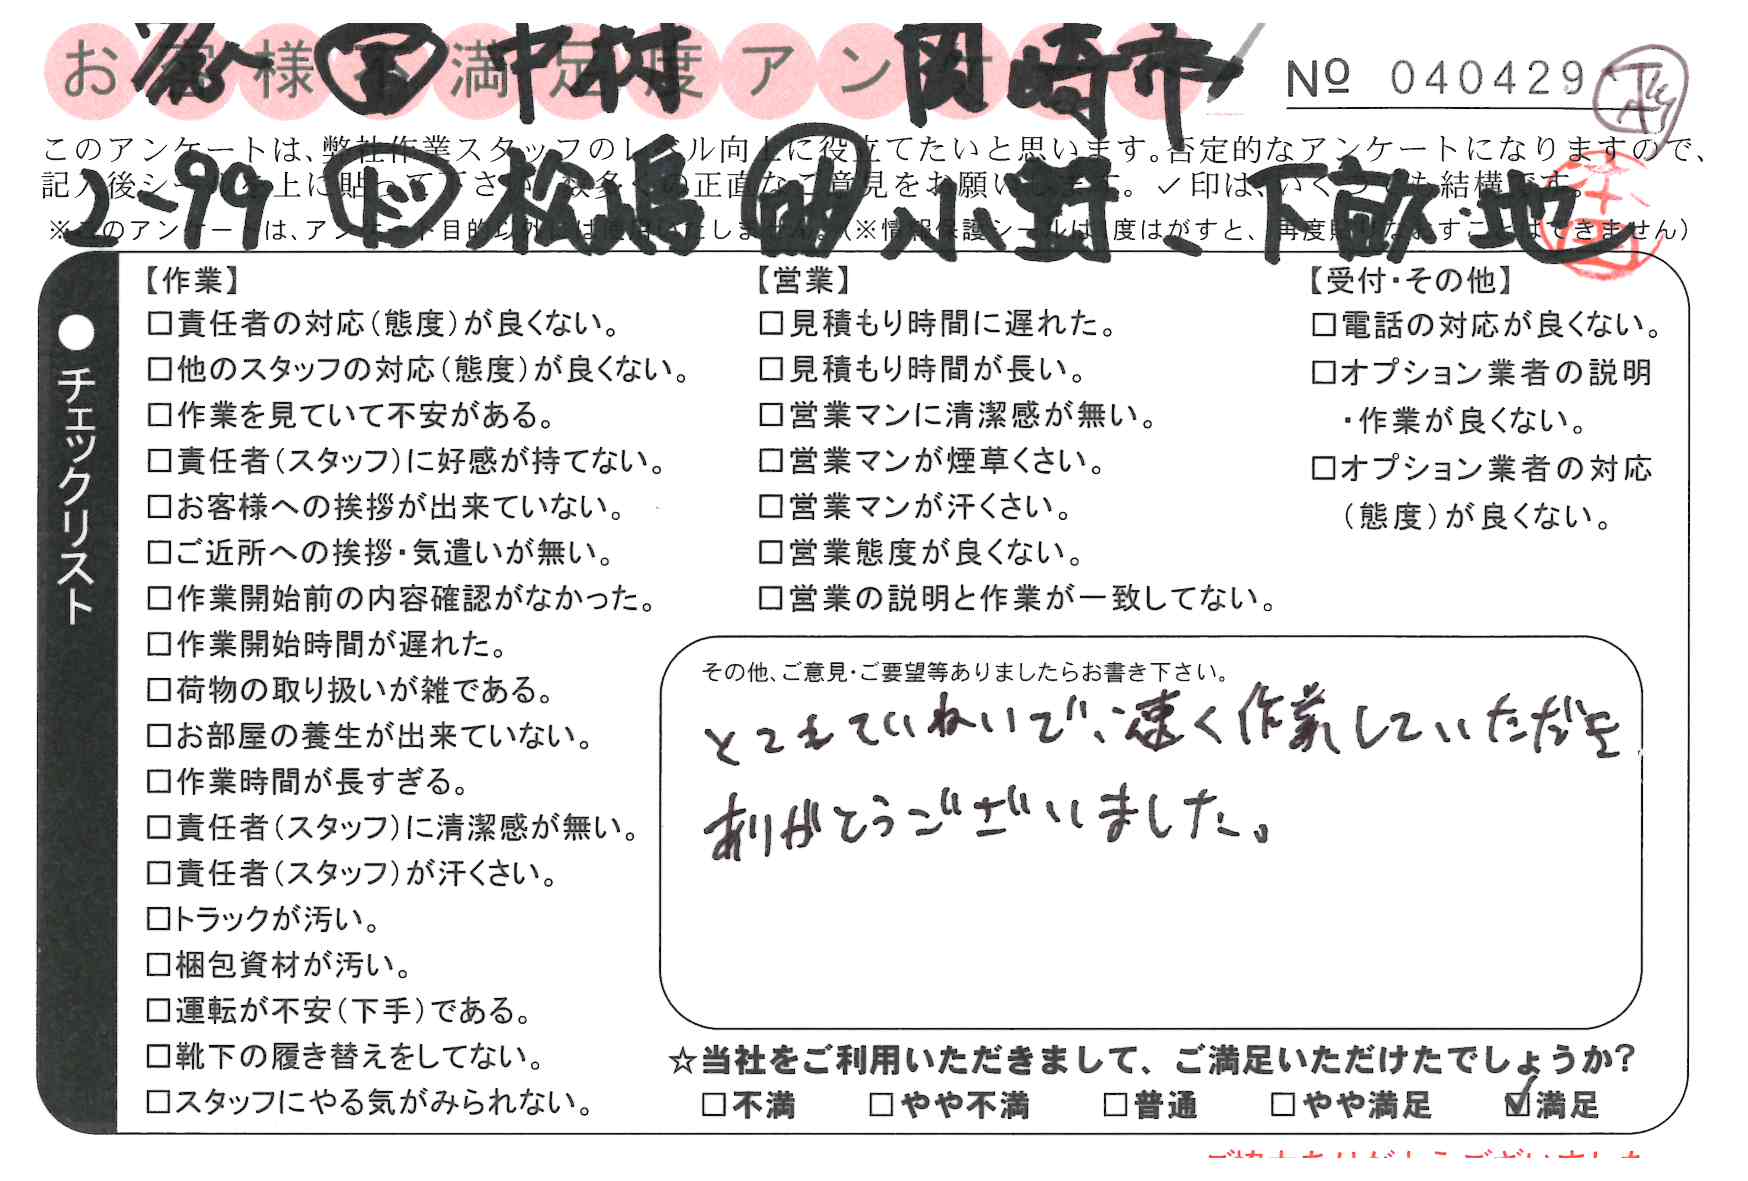 お客様不満足度アンケート
中村 岡崎市
Nº 040429
このアンケートは、弊社作業スタッフのレベル向上に役立てたいと思います。否定的なアンケートになりますので、
記入後シールを上に貼って下さい。数多くの正直なご意見をお願いします。✓印は、いくつでも結構です。
2-99 ド 松嶋 助 小野、下畝地
※このアンケートは、アンケート目的以外には使用いたしません。(※情報保護シールは1度はがすと、再度貼りなおすことはできません)
●チェックリスト
【作業】
□責任者の対応(態度)が良くない。
□他のスタッフの対応(態度)が良くない。
□作業を見ていて不安がある。
□責任者(スタッフ)に好感が持てない。
□お客様への挨拶が出来ていない。
□ご近所への挨拶・気遣いが無い。
□作業開始前の内容確認がなかった。
□作業開始時間が遅れた。
□荷物の取り扱いが雑である。
□お部屋の養生が出来ていない。
□作業時間が長すぎる。
□責任者(スタッフ)に清潔感が無い。
□責任者(スタッフ)が汗くさい。
□トラックが汚い。
□梱包資材が汚い。
□運転が不安(下手)である。
□靴下の履き替えをしてない。
□スタッフにやる気がみられない。
【営業】
□見積もり時間に遅れた。
□見積もり時間が長い。
□営業マンに清潔感が無い。
□営業マンが煙草くさい。
□営業マンが汗くさい。
□営業態度が良くない。
□営業の説明と作業が一致してない。
【受付・その他】
□電話の対応が良くない。
□オプション業者の説明
・作業が良くない。
□オプション業者の対応
(態度)が良くない。
その他、ご意見・ご要望等ありましたらお書き下さい。
とてもていねいで、速く作業していただき
ありがとうございました。
☆当社をご利用いただきまして、ご満足いただけたでしょうか?
□不満 □やや不満 □普通 □やや満足 ☑満足
ご協力ありがとうございました